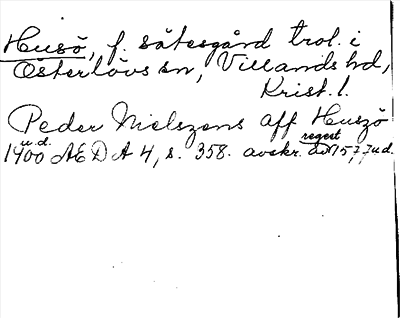 Husö, f. sätesgård trol. i
Österlövs sn, Villands hd,
Krist. l.
Peder Nielszens aff Huszö
u.d. regest
1400 AEDA 4, s. 358. avskr. av 1577 u.d.